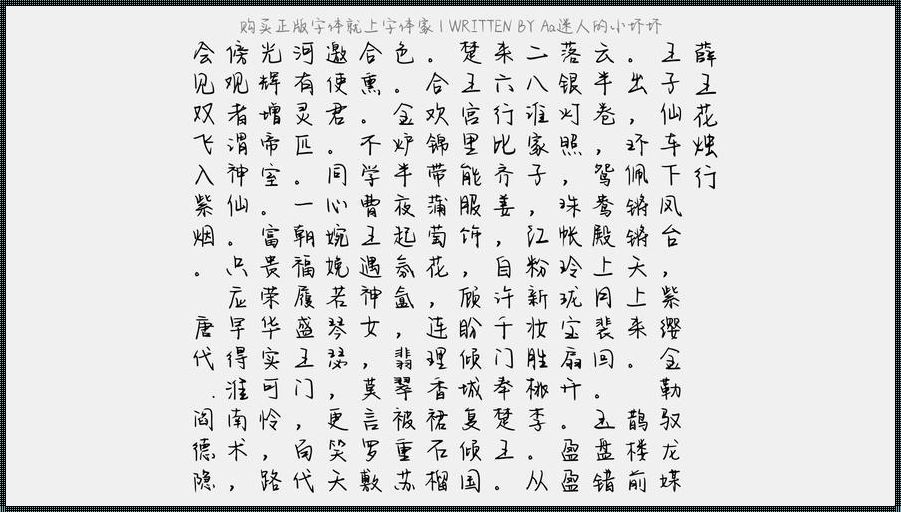 购买正版字体就上字体家 | WRITTEN BY Aa迷人的小坏坏
会傍光河邀合色。楚来二落云。王薛
见观辉有使熏。合王六八银半出子王
奴者增灵君。金欢宫行淮灯卷，仙花
飞渭帝匹。不炉锦里比家照，环车烛
入神室。同学半带能齐子，鸳佩下行
紫仙。一心曹夜蒲服姜，珠鸯锵凤
烟。富朝婉王起萄饰，江帐殿锵台
。只贵福娩遇氛花，自粉玲上天，
应荣履若神氲，顾许新珑同上紫
唐早华盛琴女，连盼千妆宝裴来缨
代得实王瑟，翡理倾门胜扇回。金
.淮可门，莫翠香城牵桃开。 勒
阎南怜，更言被裙复楚李。玉鹊驭
德术，向笑罗重石倾王。盈盘楼龙
隐，路代天敷苏榴国。从盈错前媒